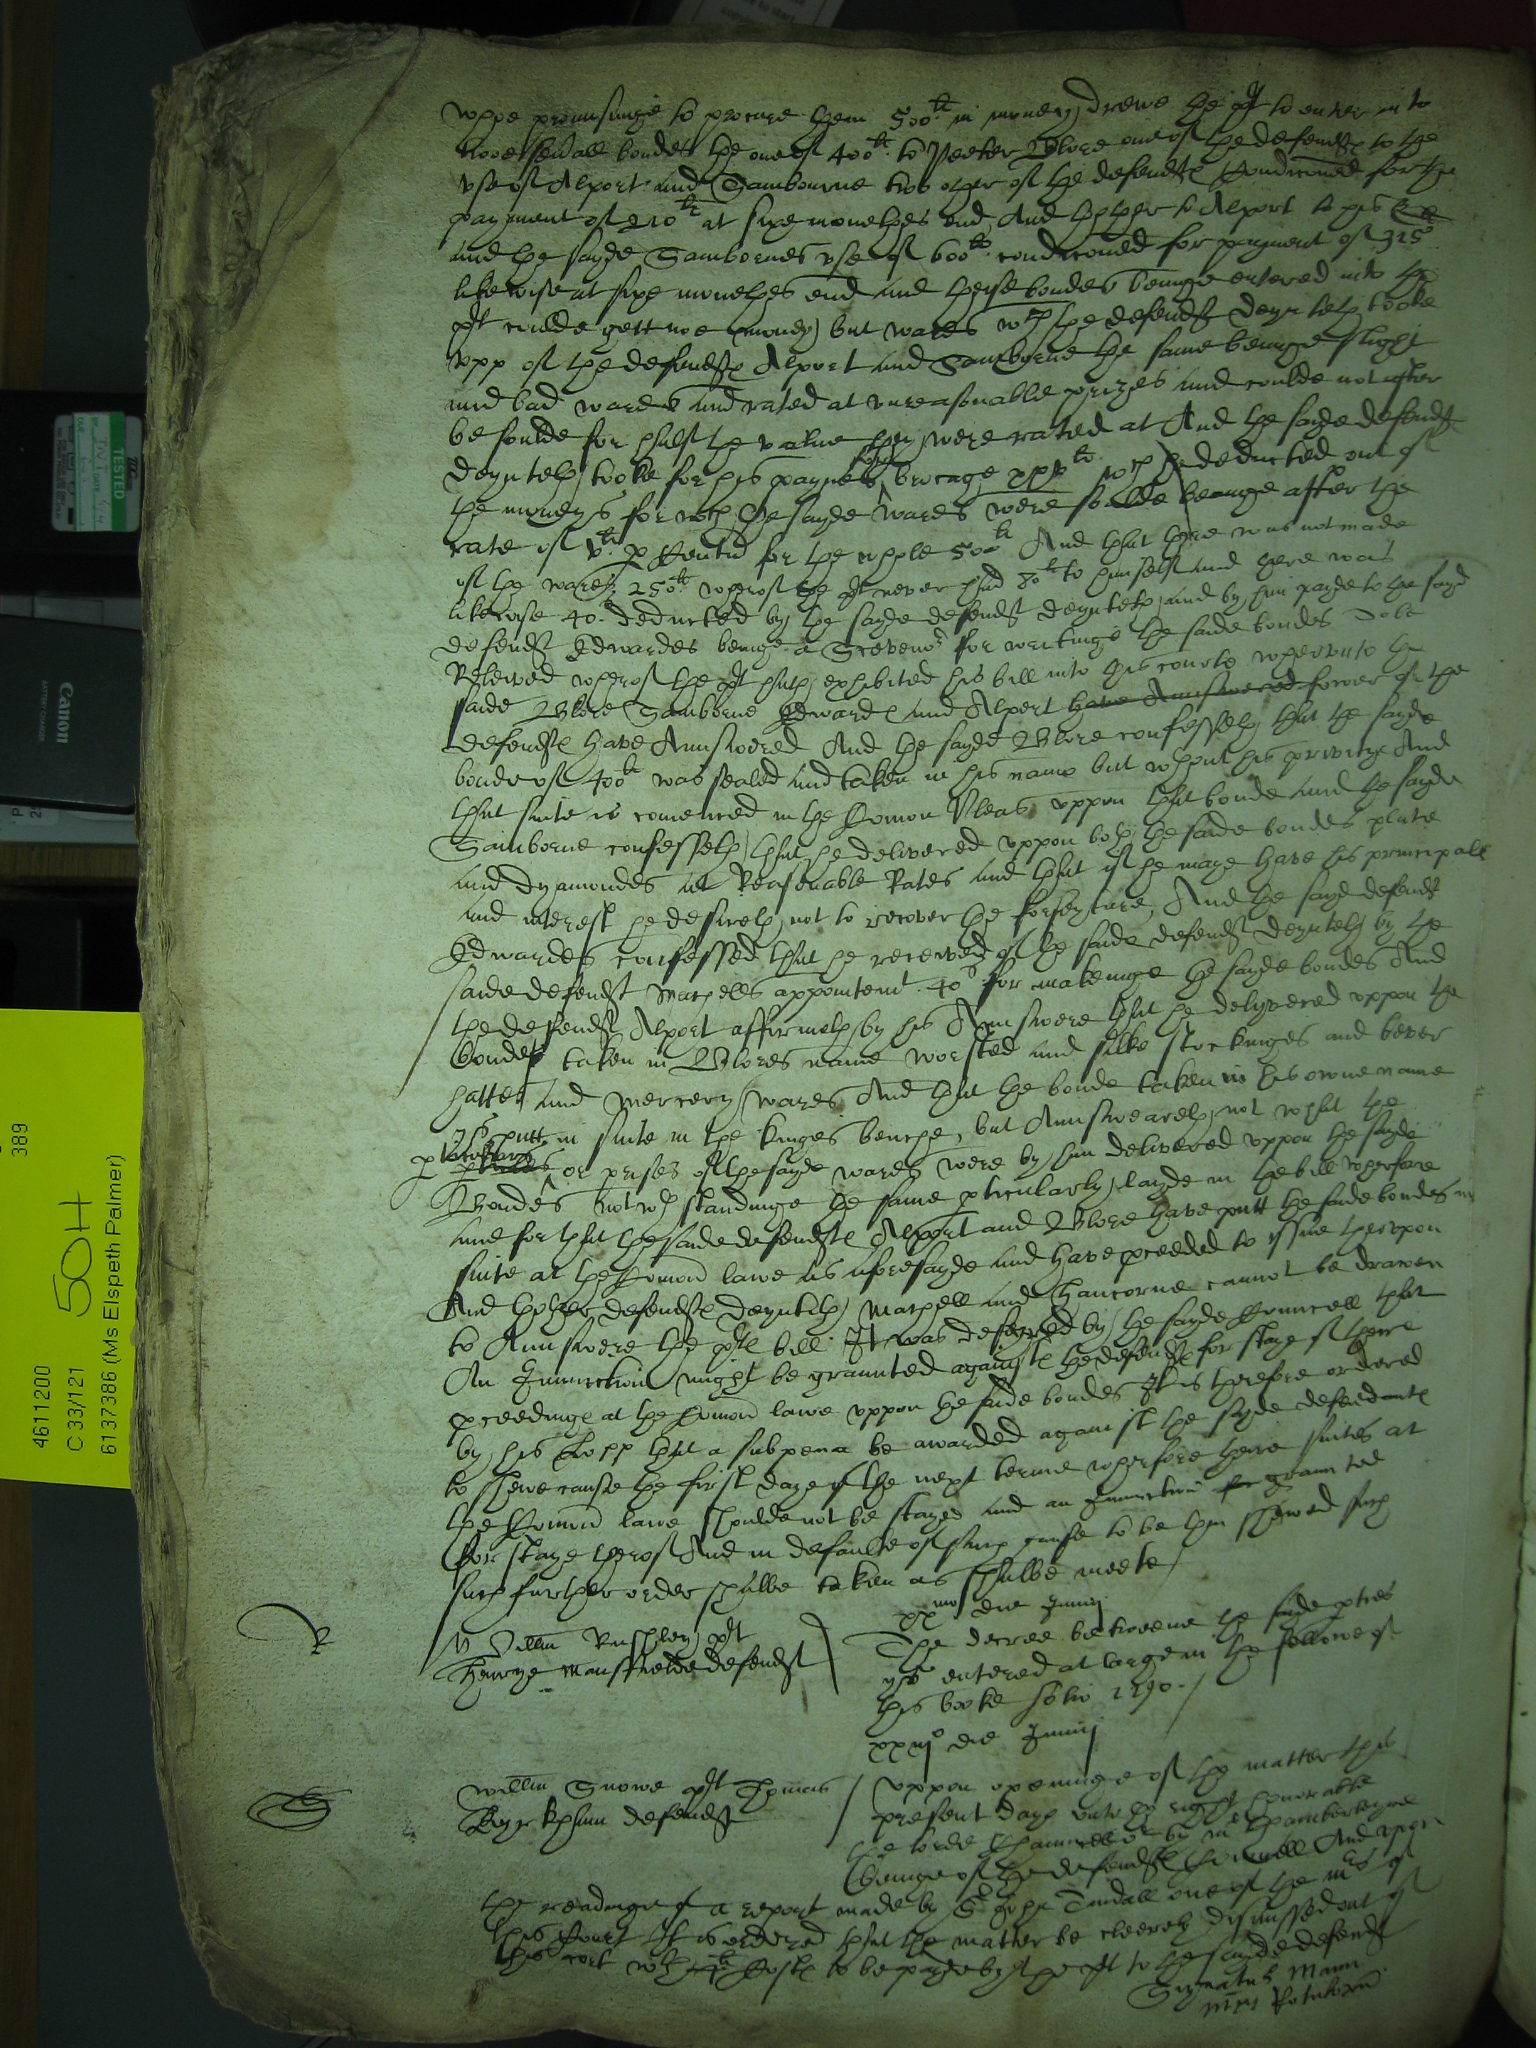 vppo promisinge to procure them 500li in money drewe the plt to enter into
twoe seu'all bondes the one of 400li to Peeter Blore one of the defendtes to the
vse of Alport and Sambourne two other of the defendtes Condiconed for the
payment of 210li at sixe monethes end And thother to Alport to his
and the sayde Sambornes vse of 600li condiconed for payment of 315
likewise at sixe monethes end and theise bondes beinge entered into the
plt coulde gett noe money but wares wch the defendt Deynteth tooke
vpp of the defendtes Alport and Samborne the same beinge slight
and bad wares and rated at vnreasonable prizes and coulde not after
be soulde for half the value they were rated at And the sayde defendt
Deynteth tooke for his paynes & brocage xxvli wch he deducted out of
the moneys for wch the sayde wares were solde beinge after the
rate of vli p Centu for the whole 500li And that there was not made
of the wares 250li wherof the plt never had 80li to himself and there was
likewise 40s deducted by the sayde defendt Deynteth and by him payde to the sayd
defendt Edwardes beinge a Scrivenor for writinge the saide bondes To be
Releived wherof the plt hath exhibited his bill into this courte wherunto the
saide Blore Samborne Edwardes and Alport have Answered fower of the
defendtes have Answered And the sayde Blore confesseth that the sayde
bonde of 400li was sealed and taken in his name but wthout his privitye And
that suite is comenced in the Comon Pleas vppon that bonde and the sayde
Samborne confesseth that he delivered vppon both the saide bondes plate
and Dyamondes at Reasonable Rates and that if he maye have his principall
and interest he desireth not to recover the forfeyture, And the sayd defendt
Edwardes confessed that he received of the saide defendt Deynteth by the
saide defendt Machells appointemt 40s for makinge the sayde bondes And
the defendt Alport affirmeth by his Answere that he delivered vppon the
bondes taken in Blores name worsted and silke stockinges and bever
hattes and mercery wares And that the bonde taken in his owne name
is putt in suite in the kinges benche, but Answeareth not what the
pticulars or prises of the sayde wares were by him delivered vppon the sayde
Bondes notwthstandinge the same pticularly layde in the bill wherfore
and for that the saide defendtes Alport and Blore have putt the saide bondes in
suite at the Comon lawe as aforesayde and have pceeded to issue thervpon
And thother defendtes Deynteth Machell and Hancorne cannot be drawen
to Answere the pltes bill It was desyred by the sayde Councell that
An Iniunction might be graunted against the defendtes for staye of there
pceedinge at the Comon lawe vppon the saide bondes It is therefore ordered
by this Cort that a subpena be awarded against the sayde defendantes
to shewe cause the first daye of the next terme wherfore there suites at
the Comon lawe shoulde not be stayed and an Iniunction graunted
for staye therof And in defaulte of such cause to be then shewed such
such further order shalbe taken as shalbe meete
xxmo die Iunij
Willm Rushley plt
Henrye Mansfeilde defendt
The decree betweene the saide pties
ys entered at large in the
this booke folio 1290
xxiijo die Iunij
Willm Snowe plt Thomas
Byrkham defendt
Vppon openinge of the matter this
present daye vnto the right honorable
the lorde Chauncellor by Mr Chamberleyne
beinge of the defendtes Councell And vpon
the readinge of a report made by Sr John Tindall one of the Mrs of
this Court It is ordered that the matter be cleerely dismissed out of
this cort wth Costes to be payde by the plt to the sayde defendt
TESTED
Canon
BATTERY CHARGER
389
50H
4611200
C 33/121
6137386 (Ms Elspeth Palmer)